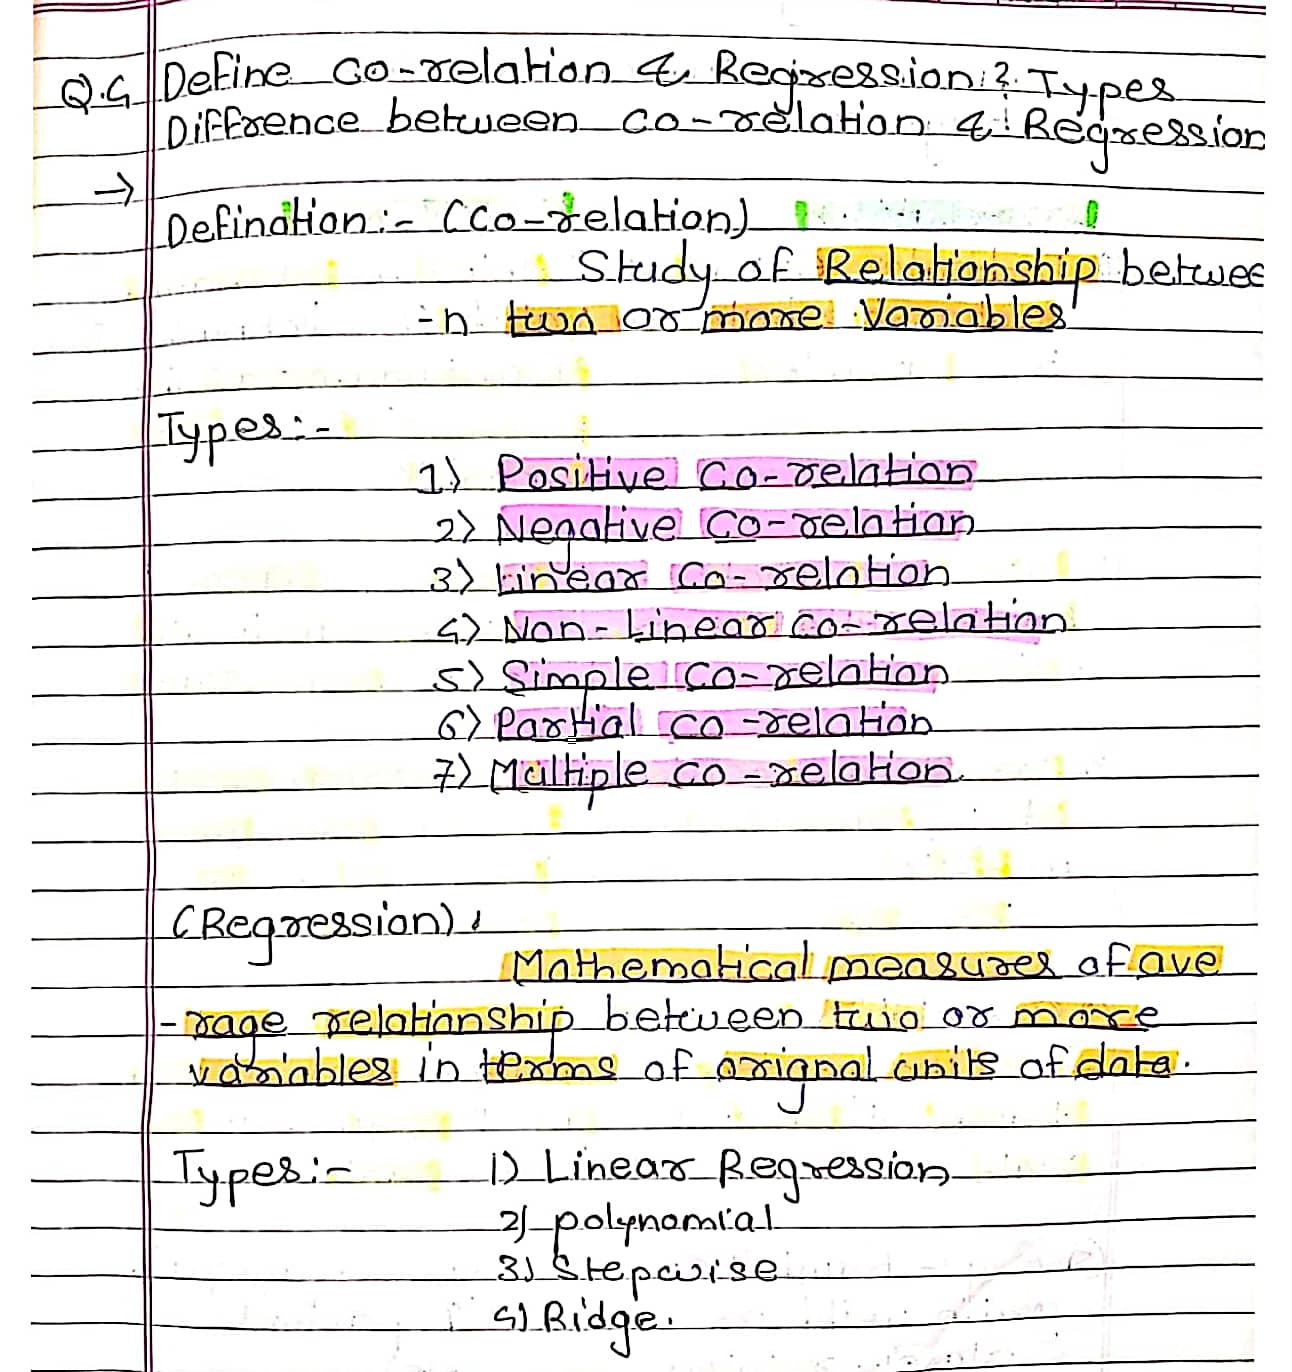 Q.4 Define co-relation & Regression? Types
Diffrence between co-relation & Regression
→
Defination :- (Co-relation)
Study of Relationship betwee
-n two or more Variables
Types :-
1) Positive Co-relation
2) Negative Co-relation
3) Linear Co-relation
4) Non-Linear co-relation
5) Simple co-relation
6) Partial co-relation
7) Multiple co-relation.
(Regression)
Mathematical measures of ave
-rage relationship between two or more
variables in terms of orignal units of data.
Types :- 1) Linear Regression
2) polynomial
3) Stepwise
4) Ridge.